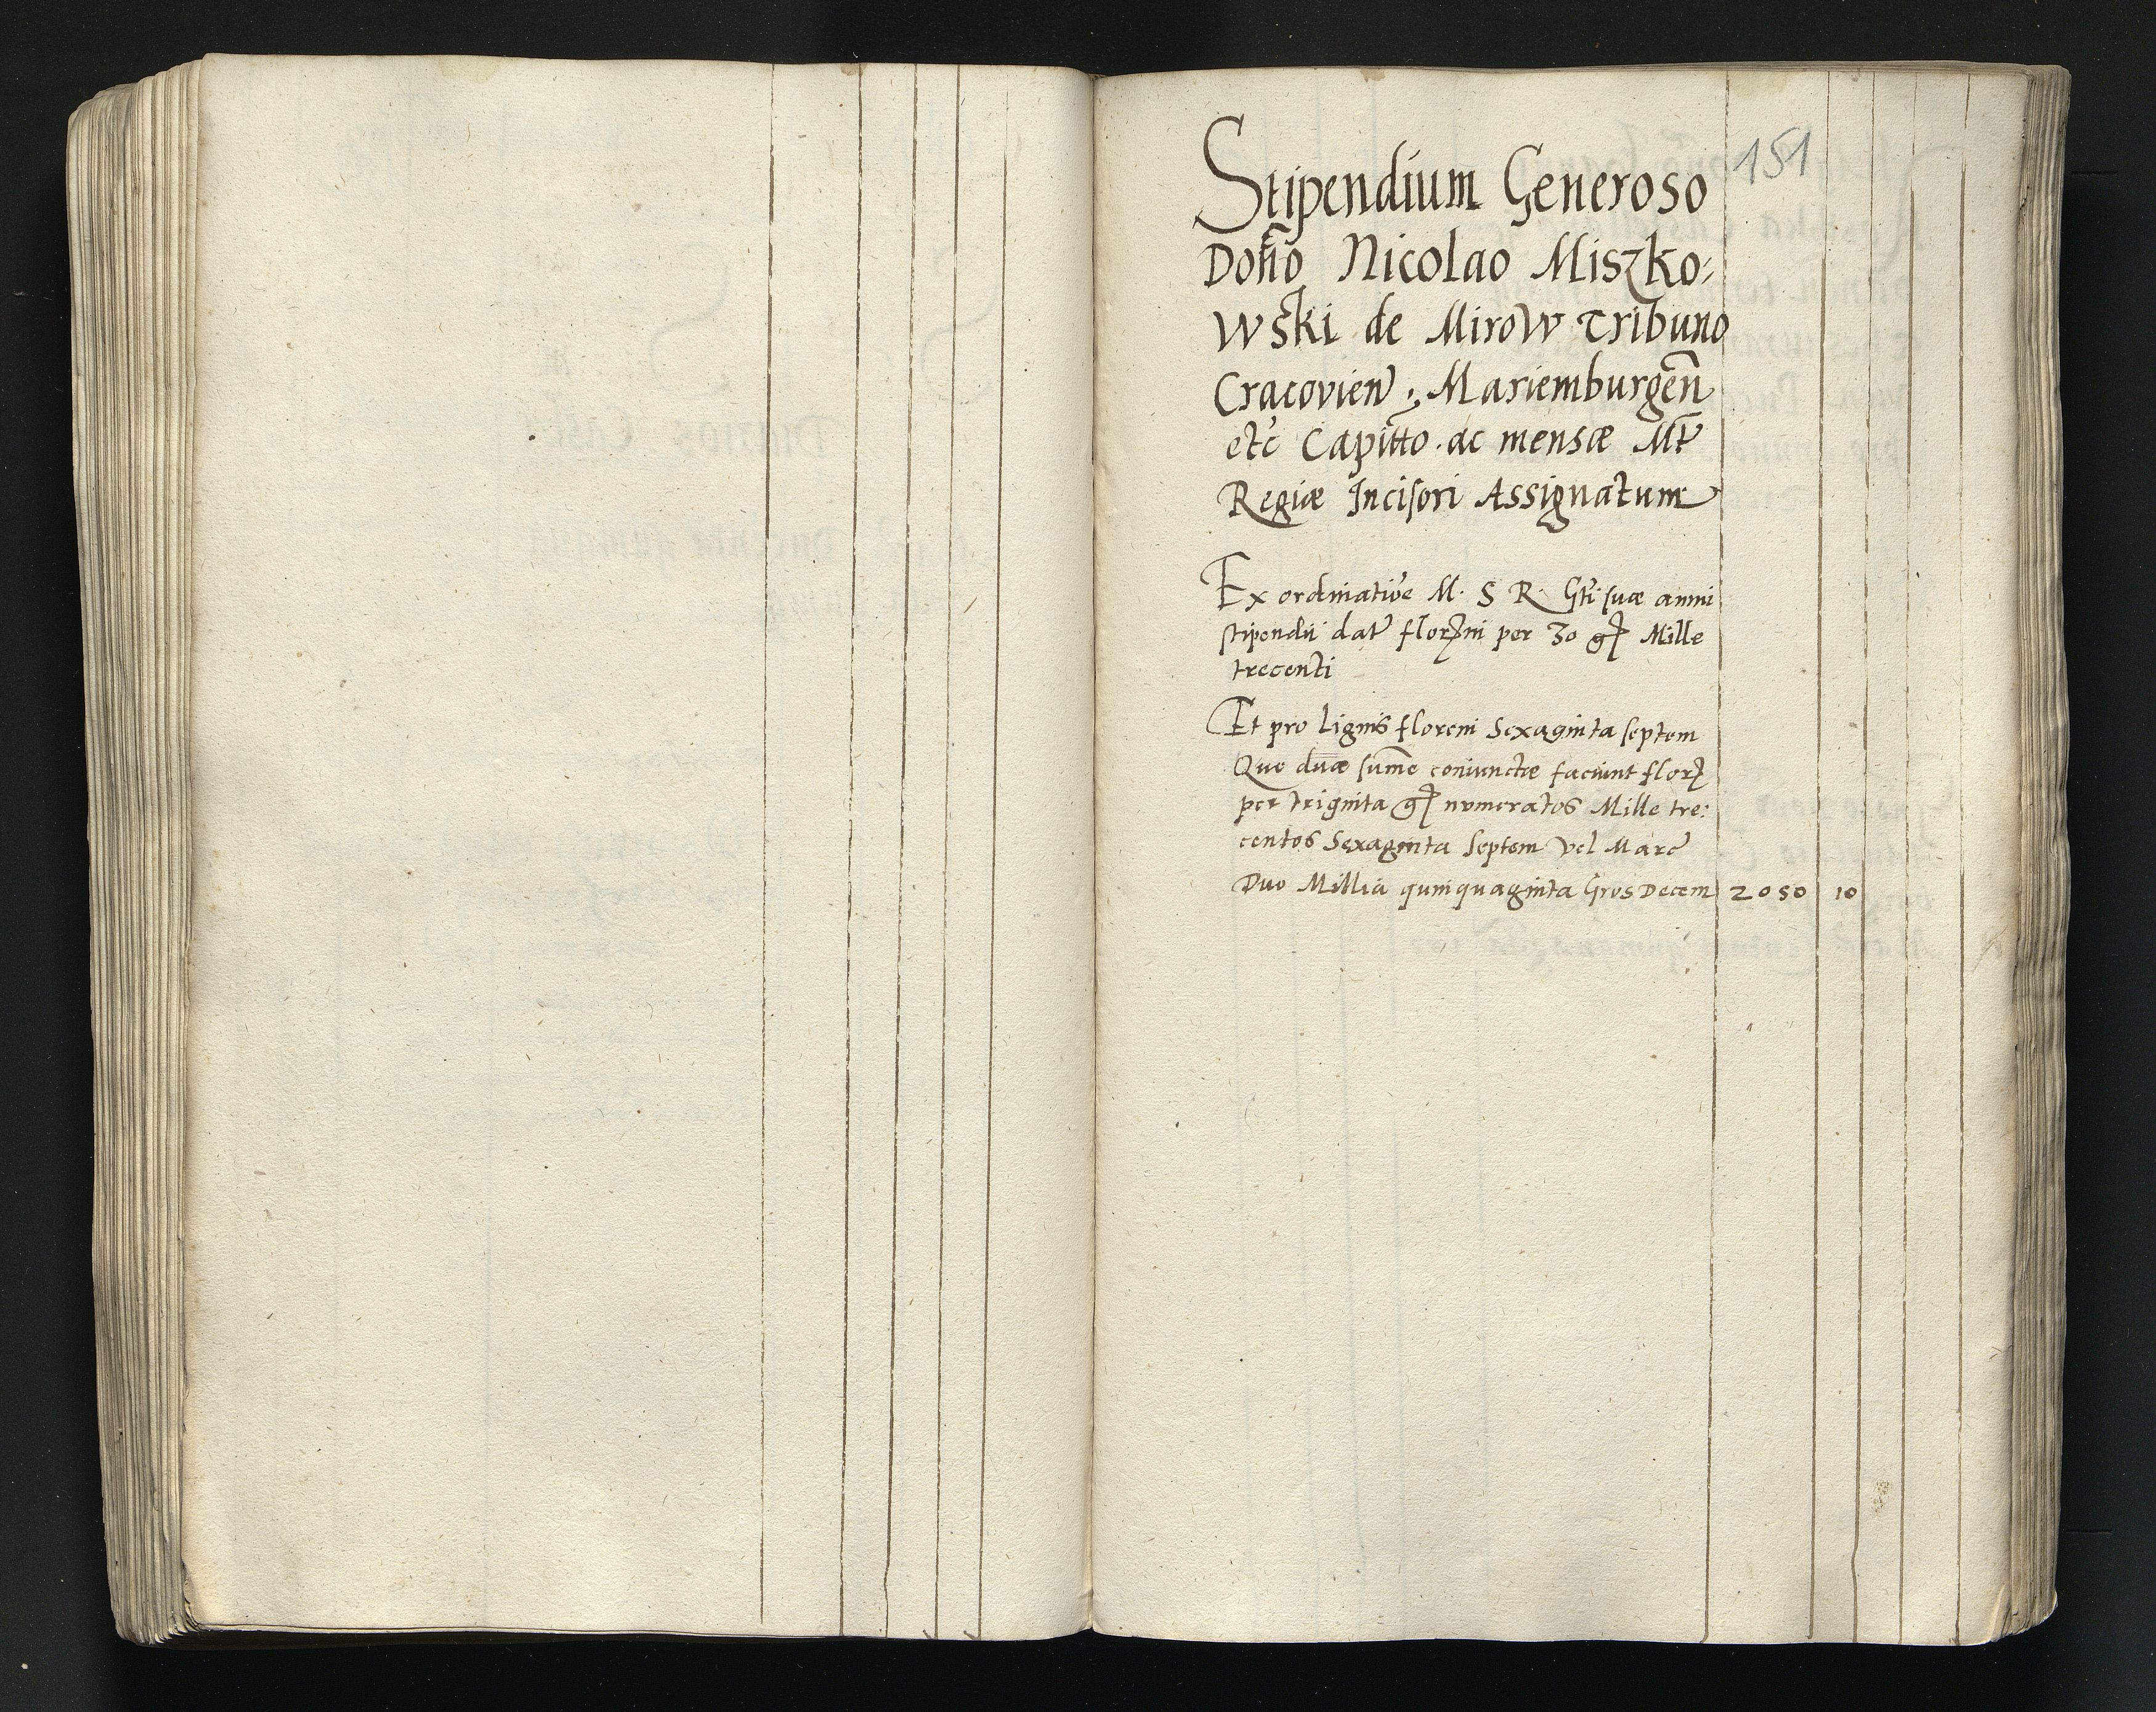 151
Stipendium Generoso
Dońo Nicolao Miszko-
wski de Mirow Tribuno
Cracovień, Mariemburgeñ
etc Capitto. ac mensæ Mt̃
Regiæ Incisori Assignatum
Ex ordinatiõe M. S R. Gti suæ annui
stipendii dat̃ florꝫni per 30 gꝭ Mille
trecenti
Et pro Lignis floreni Sexaginta septem
Que duæ sum̃e coniunctæ faciunt florꝫ
per triginta gꝭ numeratos Mille tre:
centos Sexaginta Septem vel Marc̃
Duo Millia quinquaginta Gros Decem 2050 10